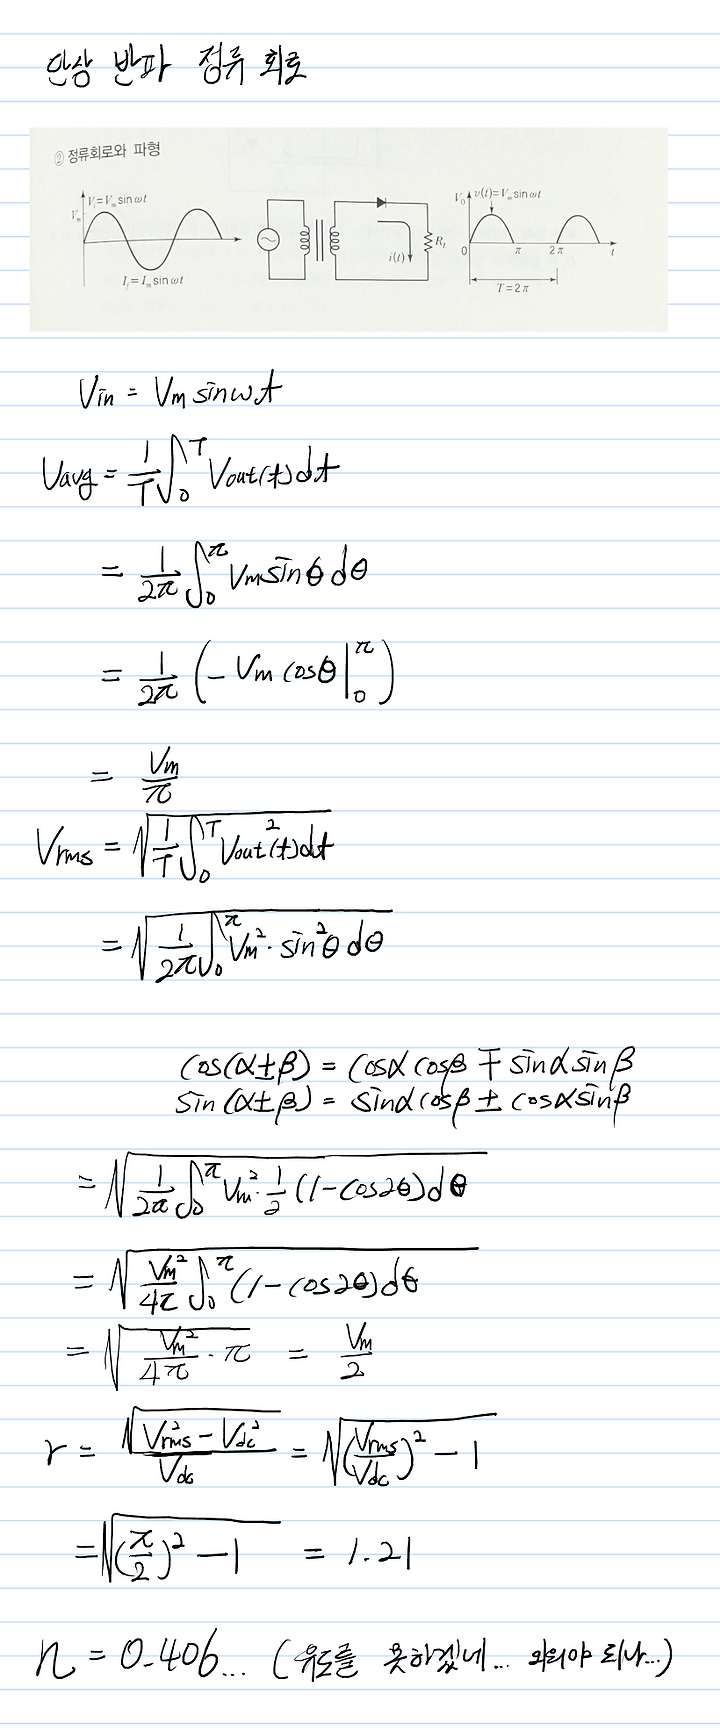 단상 반파 정류 회로
② 정류회로와 파형
Vᵢ=Vₘ sin ωt
Vₘ
Iᵢ=Iₘ sin ωt
i(t)
R_L
V₀
v(t)=Vₘ sin ωt
0 π 2π t
T=2π
Vin = Vm sinωt
Vavg = 1/T ∫₀ᵀ Vout(t)dt
= 1/2π ∫₀^π Vm sinθ dθ
= 1/2π (-Vm cosθ |₀^π)
= Vm/π
Vrms = √(1/T ∫₀ᵀ Vout²(t)dt)
= √(1/2π ∫₀^π Vm² · sin²θ dθ)
cos(α±β) = cosα cosβ ∓ sinα sinβ
sin(α±β) = sinα cosβ ± cosα sinβ
= √(1/2π ∫₀^π Vm² · 1/2 (1-cos2θ)dθ)
= √(Vm²/4π ∫₀^π (1-cos2θ)dθ)
= √(Vm²/4π · π) = Vm/2
r = √(Vrms² - Vdc²)/Vdc = √((Vrms/Vdc)² - 1)
= √((π/2)² - 1) = 1.21
η = 0.406... (유도를 못하겠네... 외워야 되나...)